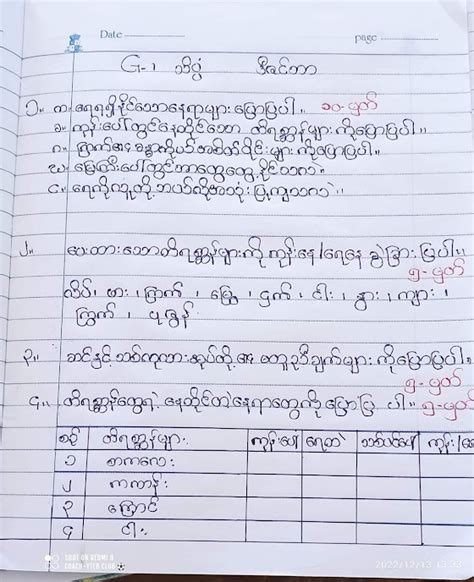 Date
page
G-1 သိပ္ပံ ဒီဇင်ဘာ
၁။ က. ရေရရှိနိုင်သောနေရာများ ပြောပြပါ။ ၁၀-မှတ်
ခ. ကုန်းပေါ်တွင်နေထိုင်သော တိရစ္ဆာန်များကိုပြောပြပါ။
ဂ. ကြက်၏ခန္ဓာကိုယ်အစိတ်ပိုင်းများကိုပြောပြပါ။
ဃ. မြေကြီးပေါ်တွင်ဘာတွေတွေ့နိုင်သလဲ။
င. ရေကိုလူတို့ဘယ်လိုအသုံးပြုကြသလဲ။
၂။ ပေးထားသောတိရစ္ဆာန်များကို ကုန်းနေ/ရေနေ ခွဲခြားပြပါ။
၅-မှတ်
လိပ်၊ ဖား၊ ကြက်၊ မြွေ၊ ငှက်၊ ငါး၊ နွား၊ ကျား၊
ကြွက်၊ ပုစွန်
၃။ ဆင်နှင့် သစ်ကုလားအုပ်တို့၏ တူညီချက်များကိုပြောပြပါ။
၅-မှတ်
၄။ တိရစ္ဆာန်တွေရဲ့ နေထိုင်တဲ့နေရာတွေကိုပြောပြပါ။ ၅-မှတ်
စဉ် တိရစ္ဆာန်များ ကုန်းပေါ် ရေထဲ သစ်ပင်ပေါ် ကုန်း/ရေ
၁ စာကလေး
၂ ကဏန်း
၃ ကြောင်
၄ ငါး
SHOT ON REDMI 9
2022/12/13